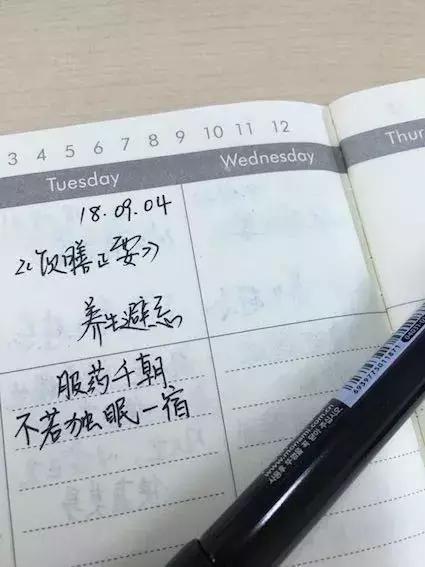 3 4 5 6 7 8 9 10 11 12
Tuesday
Wednesday
Thur
18.09.04
《饮膳正要》
养生避忌
服药千朝
不若独眠一宿
6939775011871